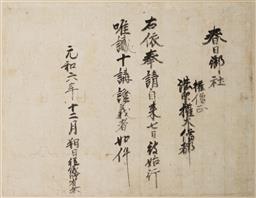 春日御社
権僧正
法印権大僧都
右依奉請自来七日被始行
唯識十講講義者如件
元和六年十二月朔日